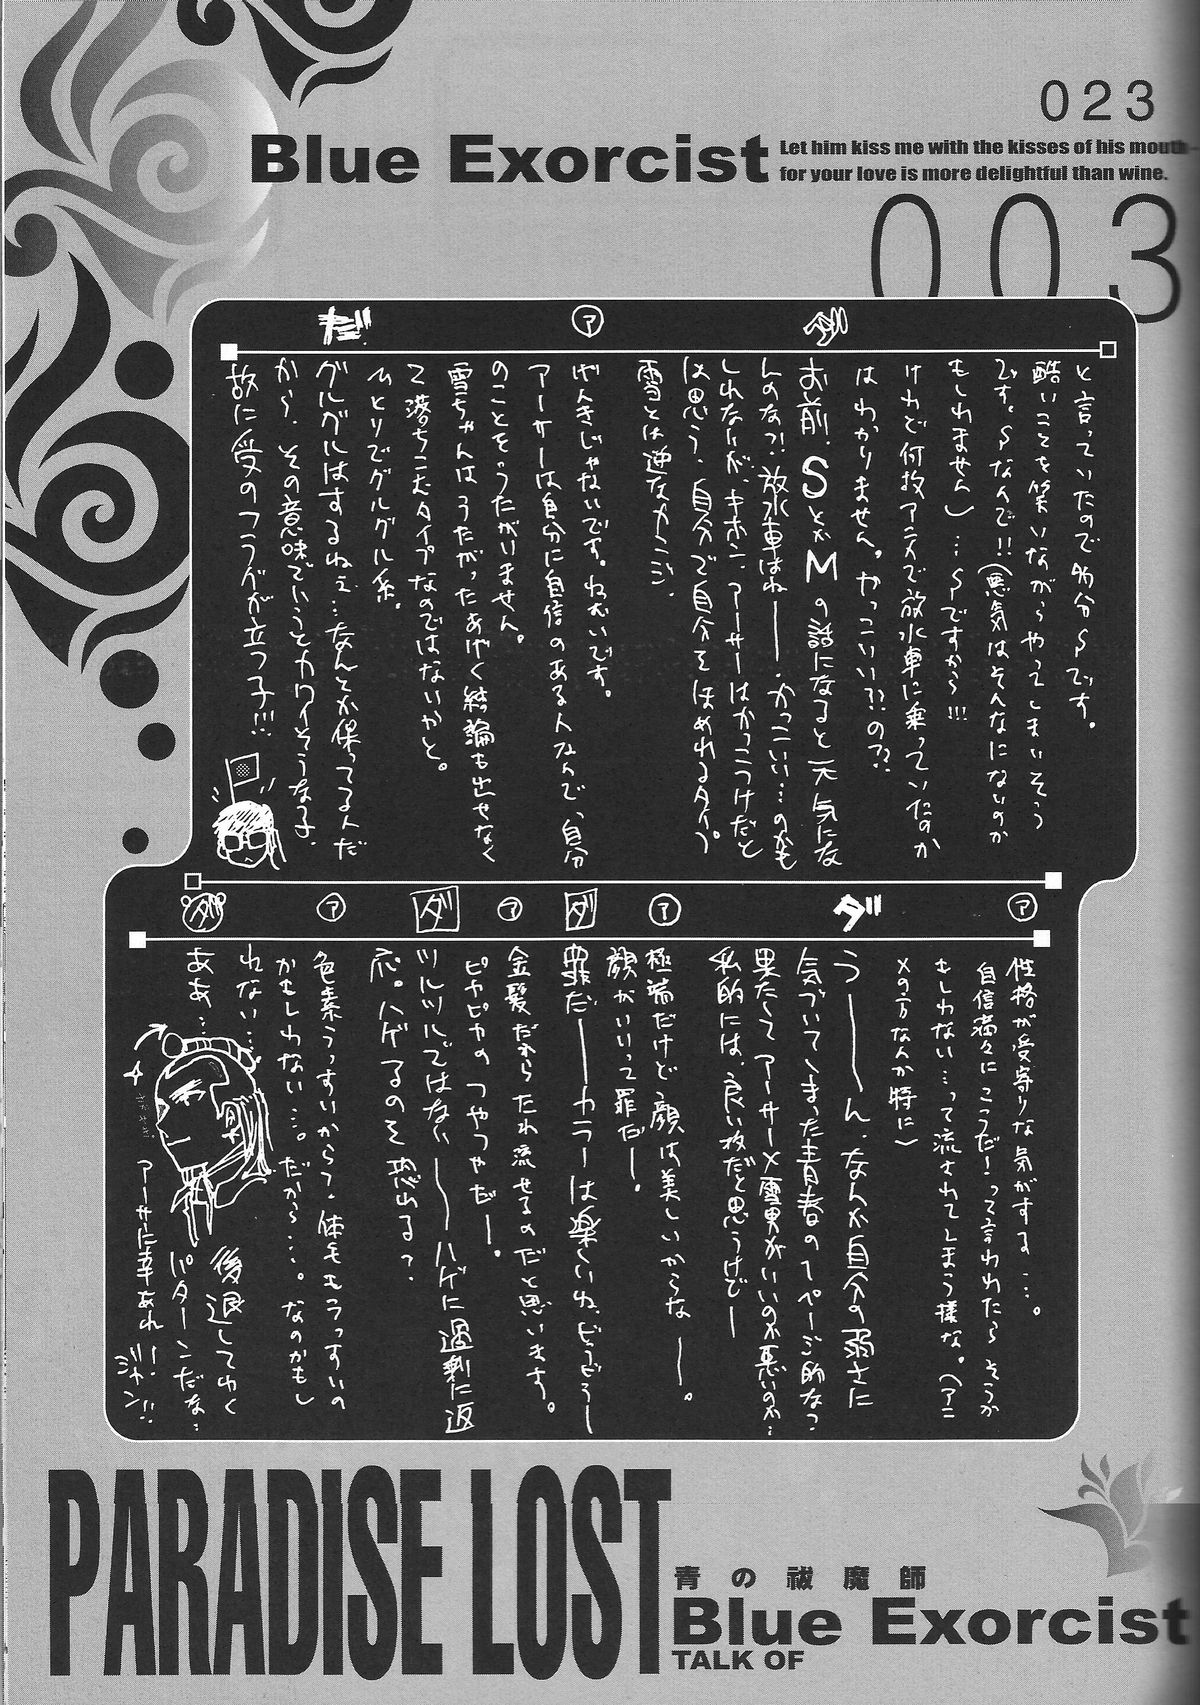 023
Blue Exorcist
Let him kiss me with the kisses of his mouth-
for your love is more delightful than wine.
003
と言っていたので多分Sです。
酷いことを笑いながらやってしまいそう
です。Sなんで!!(悪気はそんなにないのか
もしれません)…Sですから!!!
けれど何故アニメで放水車に乗っていたのか
はわかりません。やっこいい??の??
ダ
お前、SとかMの話になると元気にな
んのな?!放水車はねー、かっこいい…のかも
しれないが、キホン、アーサーはかっこつけだと
は思う、自分で自分をほめれるタイプ。
雪とは逆なカンジ。
ア
げんきじゃないです。ねむいです。
アーサーは自分に自信のある人なんで、自分
のことをうたがいません。
雪ちゃんはうたがったあげく結論も出せなく
て落ちこむタイプなのではないかと。
ひとりでグルグル系。
だ
グルグルはするねぇ…なんとか保ってるんだ
から、その意味でいうとカワイそうな子、
故に受のフラグが立つ子!!!
ア
性格が受寄りな気がする…。
自信満々にこうだ!って言われたらそうか
もしれない…って流されてしまう様な。(アニ
メの方なんか特に)
ダ
うーーん、なんか自分の弱さに
気づいてしまった青春の1ページ的なっ
果たしてアーサー×雪男がいいのか悪いのか…
私的には、良い攻だと思うけどー
ア
極論だけど、顔は美しいからなー。
顔がいいって罪だー。
ダ
罪だーーカラーは楽しいね、どうどうー
ア
金髪だからたれ流せるのだと思います。
ピカピカのつやつやだー。
ダ
ツルツルではないーーハゲに過剰に返
応。ハゲるのを恐れる?
ア
色素うっすいからって、体毛もうっすいの
かもしれない…。だから…。なのかもし
れない…。
ダ
ああ…
後退してゆく
パターンだな…
アーサーに幸あれ!!
ジャン!!
PARADISE LOST
青の祓魔師
Blue Exorcist
TALK OF